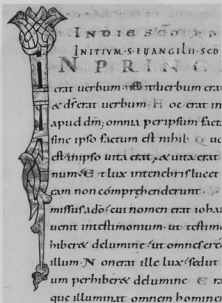 INITIVM·S·EVANGELII·SCD
N PRINC
erat uerbum et uerbum erat
& ds erat uerbum· Hoc erat in
apud dm; omnia per ipsum fact
sine ipso factum est nihil· Quo
est in ipso uita erat, & uita erat
num· Et lux in tenebris lucet
eam non comprehenderunt·
missus a do· cui nomen erat iohan
uenit in testimonium· ut testimo
hiber& de lumine· ut omnes cre
illum· Non erat ille lux· sed ut
um perhiber& de lumine· Er
que illuminat omnem hominem